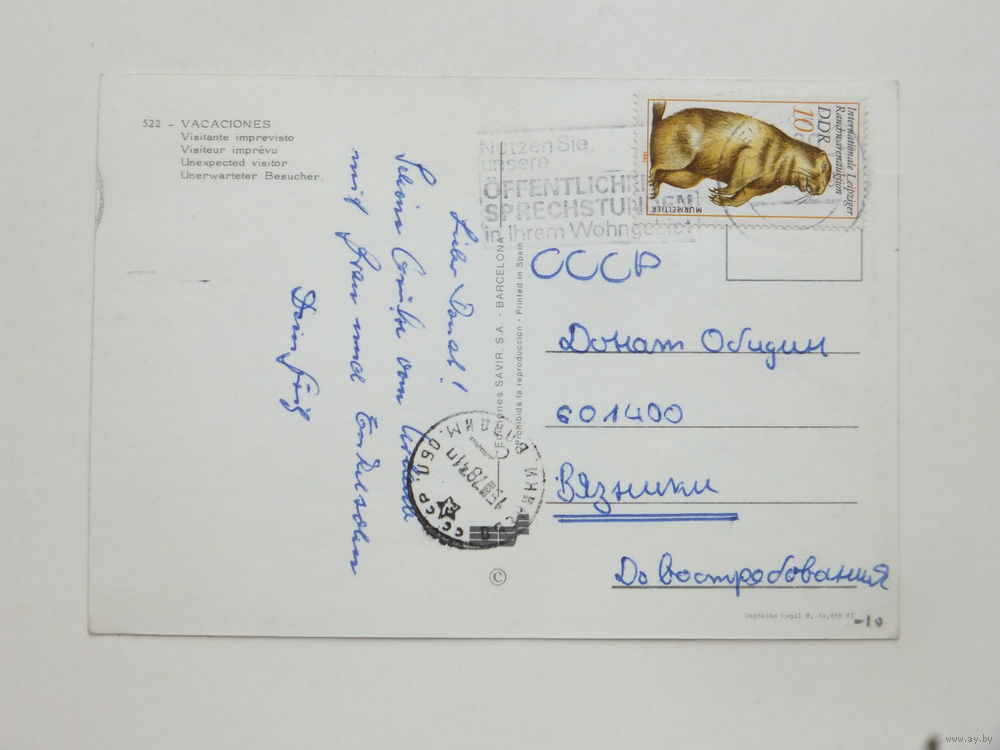 522 - VACACIONES
Visitante imprevisto
Visiteur imprévu
Unexpected visitor
Unerwarteter Besucher.
Lieber Donat!
Schöne Grüße vom Urlaub
mit Frau und Enkelsohn
Dein
Ediciones SAVIR, S.A. - BARCELONA
Prohibida la reproducción - Printed in Spain
©
Nutzen Sie,
unsere
ÖFFENTLICHEN
SPRECHSTUNDEN
in Ihrem Wohngebiet
Internationale Leipziger
Rauchwarenauktion
DDR
10
MURMELTIER
СССР
Донат Обидин
601400
Вязники
До востребования
СССР
ВЛАДИМ. ОБЛ.
Depósito Legal B.
-10
www.ay.by